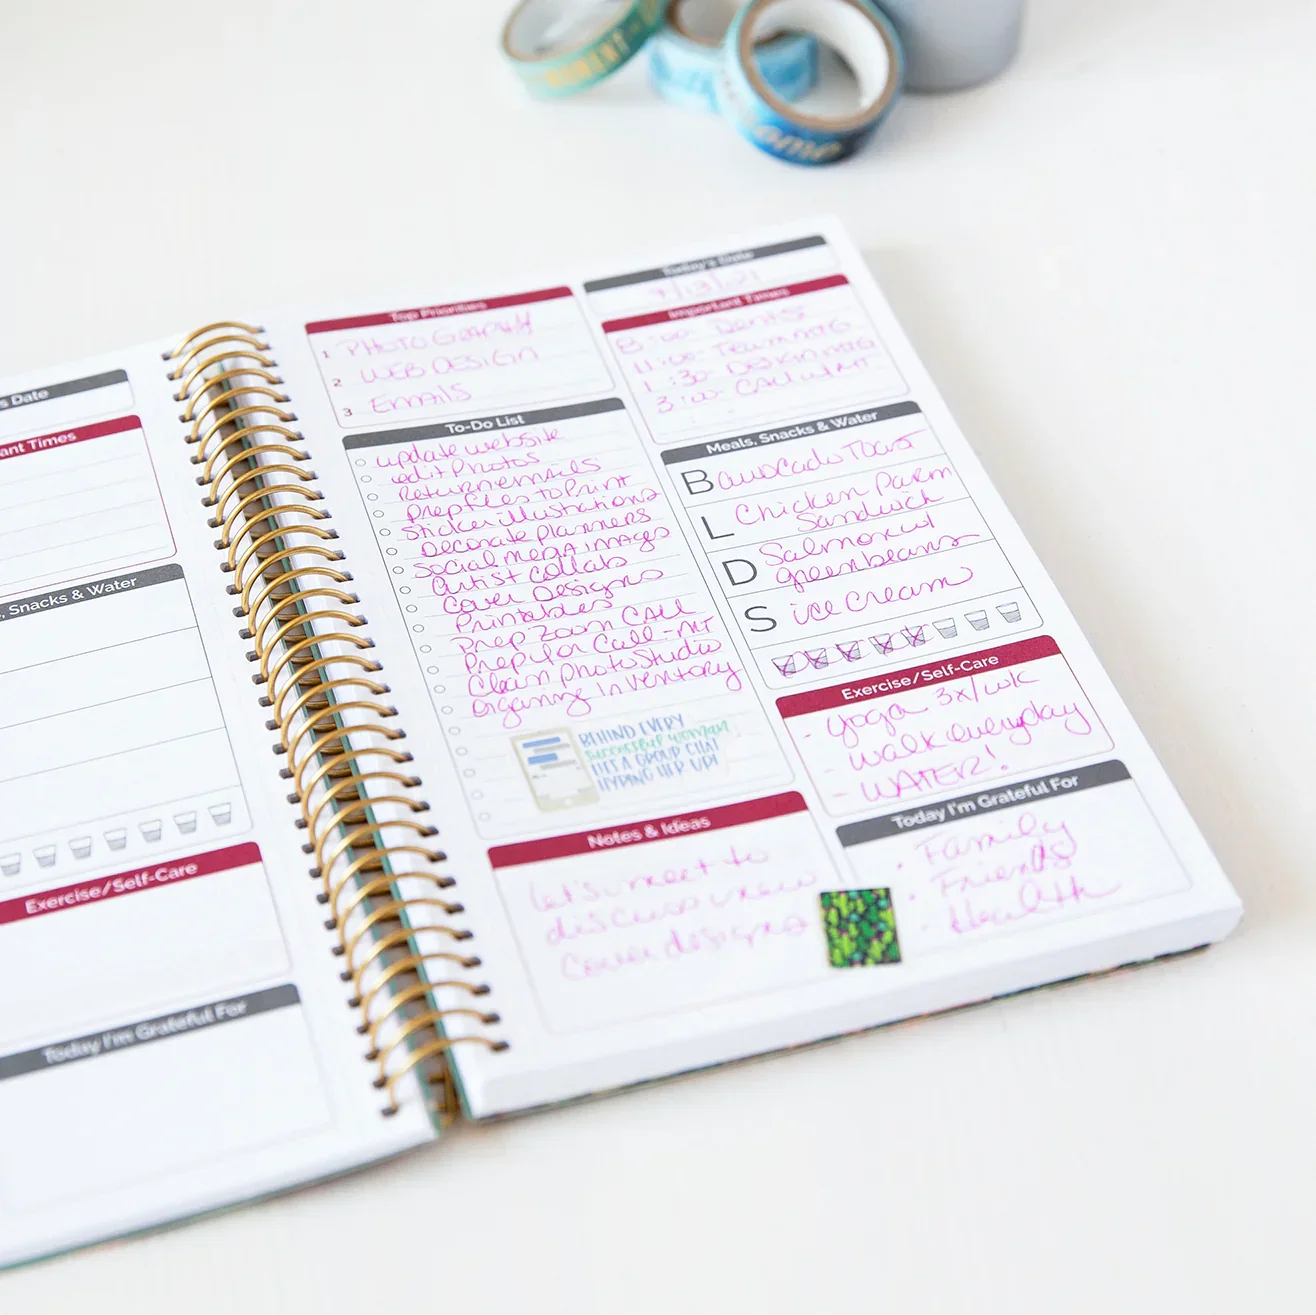 s Date
ant Times
, Snacks & Water
Exercise/Self-Care
Today I'm Grateful For
Top Priorities
1 PHOTOGRAPHY
2 WEB DESIGN
3 EMAILS
To-Do List
update website
edit Photos
Return emails
Prep Files to Print
Sticker illustrations
Decorate Planners
Social media images
artist collab
Cover Designs
Printables
Prep Zoom CALL
Prep for Call-MT
Clean Photo Studio
Organize Inventory
BEHIND EVERY
SUCCESSFUL WOMAN
IS A GROUP CHAT
HYPING HER UP!
Notes & Ideas
Let's meet to
discuss new
cover designs
Today's Date
9/13/21
Important Times
8:00 Dentist
11:00 Team MTG
1:30 Design MTG
3:00 Call w/ MT
Meals, Snacks & Water
B avocado Toast
L Chicken Parm
Sandwich
D Salmon and
greenbeans
S ice cream
Exercise/Self-Care
- yoga 3x/wk
- walk everyday
- WATER!
Today I'm Grateful For
· Family
· Friends
· Health